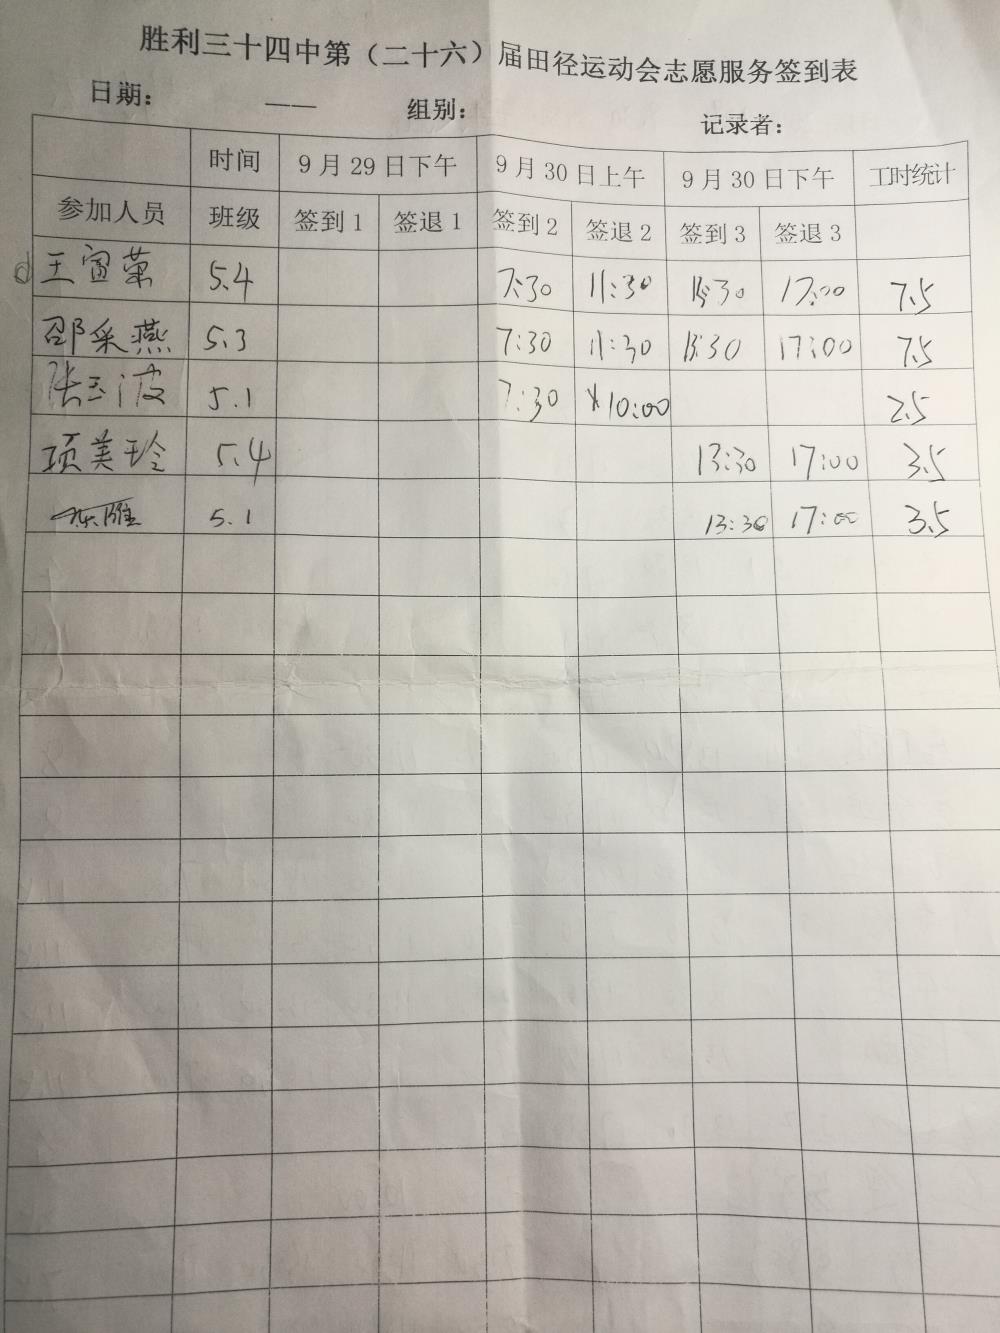 胜利三十四中第（二十六）届田径运动会志愿服务签到表
日期： —— 组别： 记录者：
时间 9月29日下午 9月30日上午 9月30日下午 工时统计
参加人员 班级 签到1 签退1 签到2 签退2 签到3 签退3
王 5.4 7:30 11:30 13:30 17:00 7.5
邵采燕 5.3 7:30 11:30 13:30 17:00 7.5
张玉波 5.1 7:30 10:00 2.5
项美玲 5.4 13:30 17:00 3.5
5.1 13:30 17:00 3.5